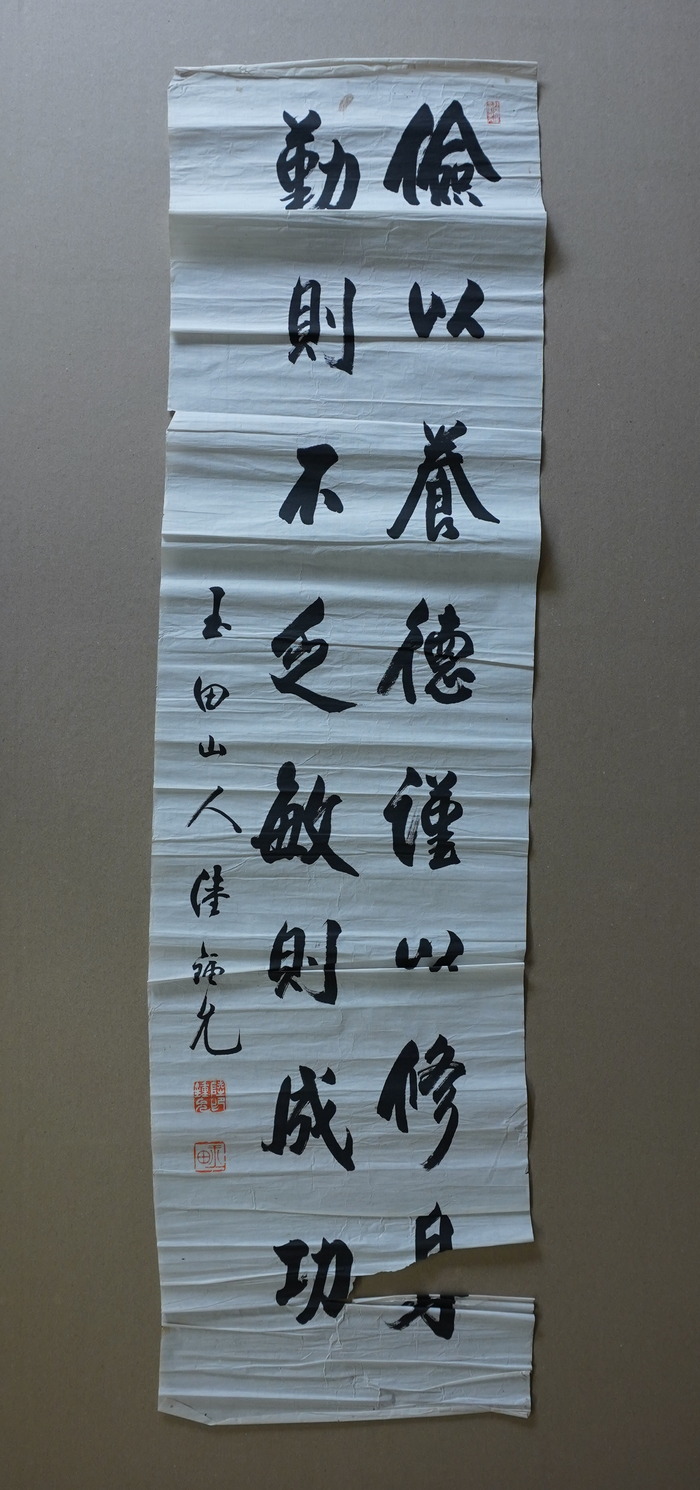 儉以養德謹以修身
勤則不乏敏則成功
玉田山人陸允